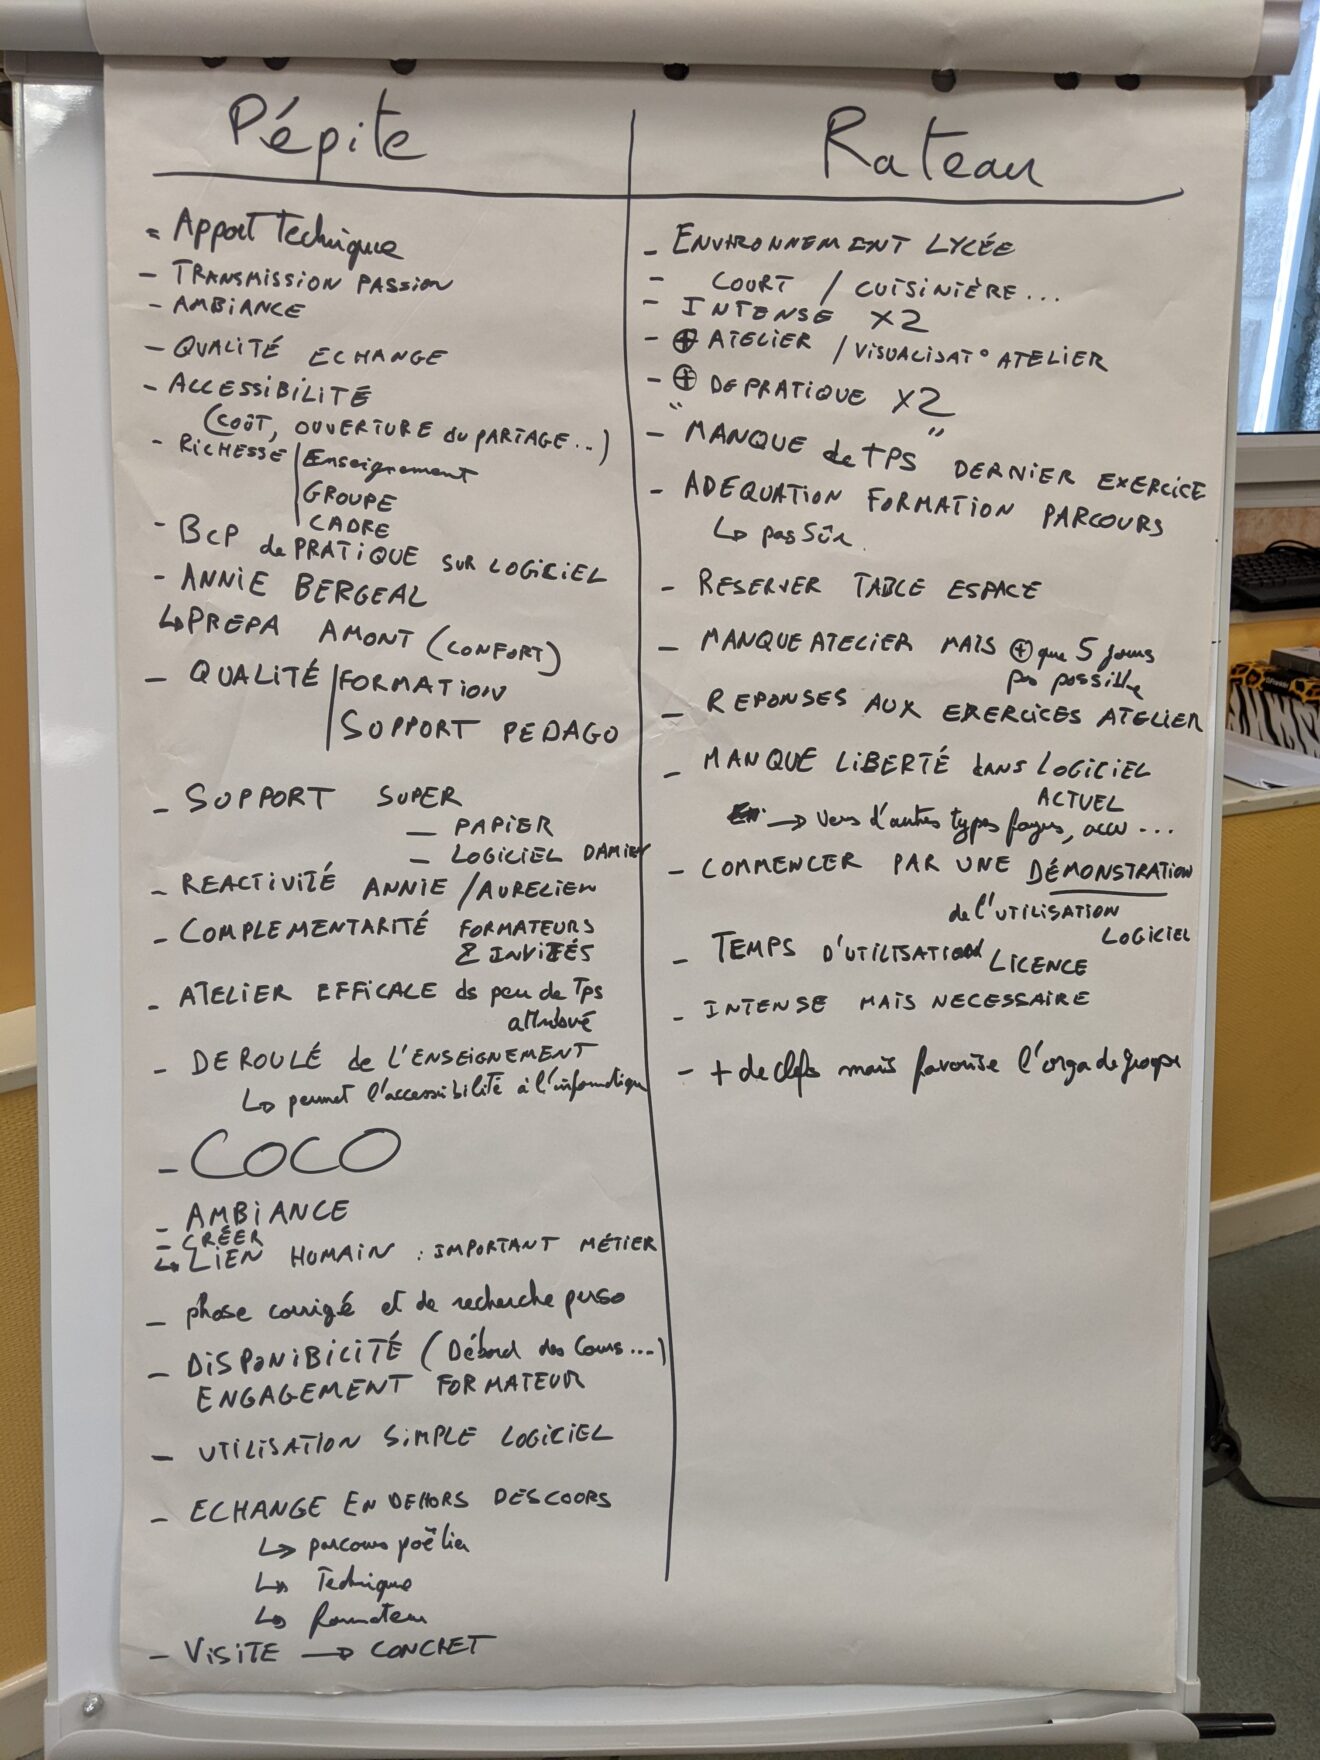 Pépite
- Apport Technique
- TRANSMISSION PASSION
- AMBIANCE
- QUALITÉ ECHANGE
- ACCESSIBILITÉ
(COÛT, OUVERTURE du PARTAGE...)
- RICHESSE | Enseignement
GROUPE
CADRE
- BCP de PRATIQUE SUR LOGICIEL
- ANNIE BERGEAL
↳ PREPA AMONT (CONFORT)
- QUALITÉ | FORMATION
SUPPORT PEDAGO
- SUPPORT SUPER
- PAPIER
- LOGICIEL DAMIEN
- REACTIVITÉ ANNIE / AURELIEN
- COMPLEMENTARITÉ FORMATEURS
& INVITÉS
- ATELIER EFFICALE ds peu de Tps
attribué
- DEROULÉ de L'ENSEIGNEMENT
↳ permet l'accessibilité à l'informatique
- COCO
- AMBIANCE
- CRÉER
↳ LIEN HUMAIN : IMPORTANT MÉTIER
- phase corrigé et de recherche perso
- DISPONIBILITÉ (Débord des Cours...)
ENGAGEMENT FORMATEUR
- UTILISATION SIMPLE LOGICIEL
- ECHANGE EN DEHORS DES COURS
↳ parcours poêlier
↳ Technique
↳ formateur
- VISITE → CONCRET
Rateau
- ENVIRONNEMENT LYCÉE
- COURT / CUISINIÈRE...
- INTENSE X2
- ⊕ ATELIER / VISUALISAT° ATELIER
- ⊕ DE PRATIQUE X2
- "MANQUE de TPS" DERNIER EXERCICE
- ADEQUATION FORMATION PARCOURS
↳ pas sûr.
- RESERVER TABLE ESPACE
- MANQUE ATELIER MAIS ⊕ que 5 jours
pas possible
- REPONSES AUX EXERCICES ATELIER
- MANQUE LIBERTÉ dANS LOGICIEL
ACTUEL
→ vers d'autres types foyers, accu ...
- COMMENCER PAR UNE DÉMONSTRATION
de l'UTILISATION
LOGICIEL
- TEMPS D'UTILISATION LICENCE
- INTENSE MAIS NECESSAIRE
- + de clefs mais favorise l'orga de groupe